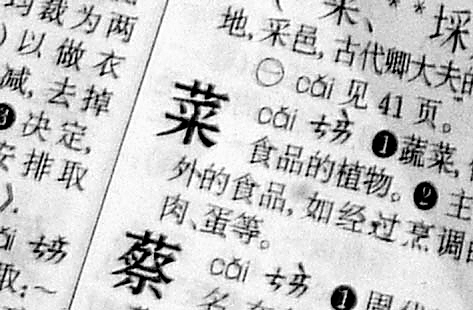 均裁为两
)以做衣
减,去掉
❸决定,
安排取
).
取:~
采、**埰
地,采邑,古代卿大夫的
㊀ cǎi 见 41 页。
菜 cài ㄘㄞˋ ❶蔬菜,
食品的植物。❷主
外的食品,如经过烹调的
肉、蛋等。
蔡 cài ㄘㄞˋ ❶周代